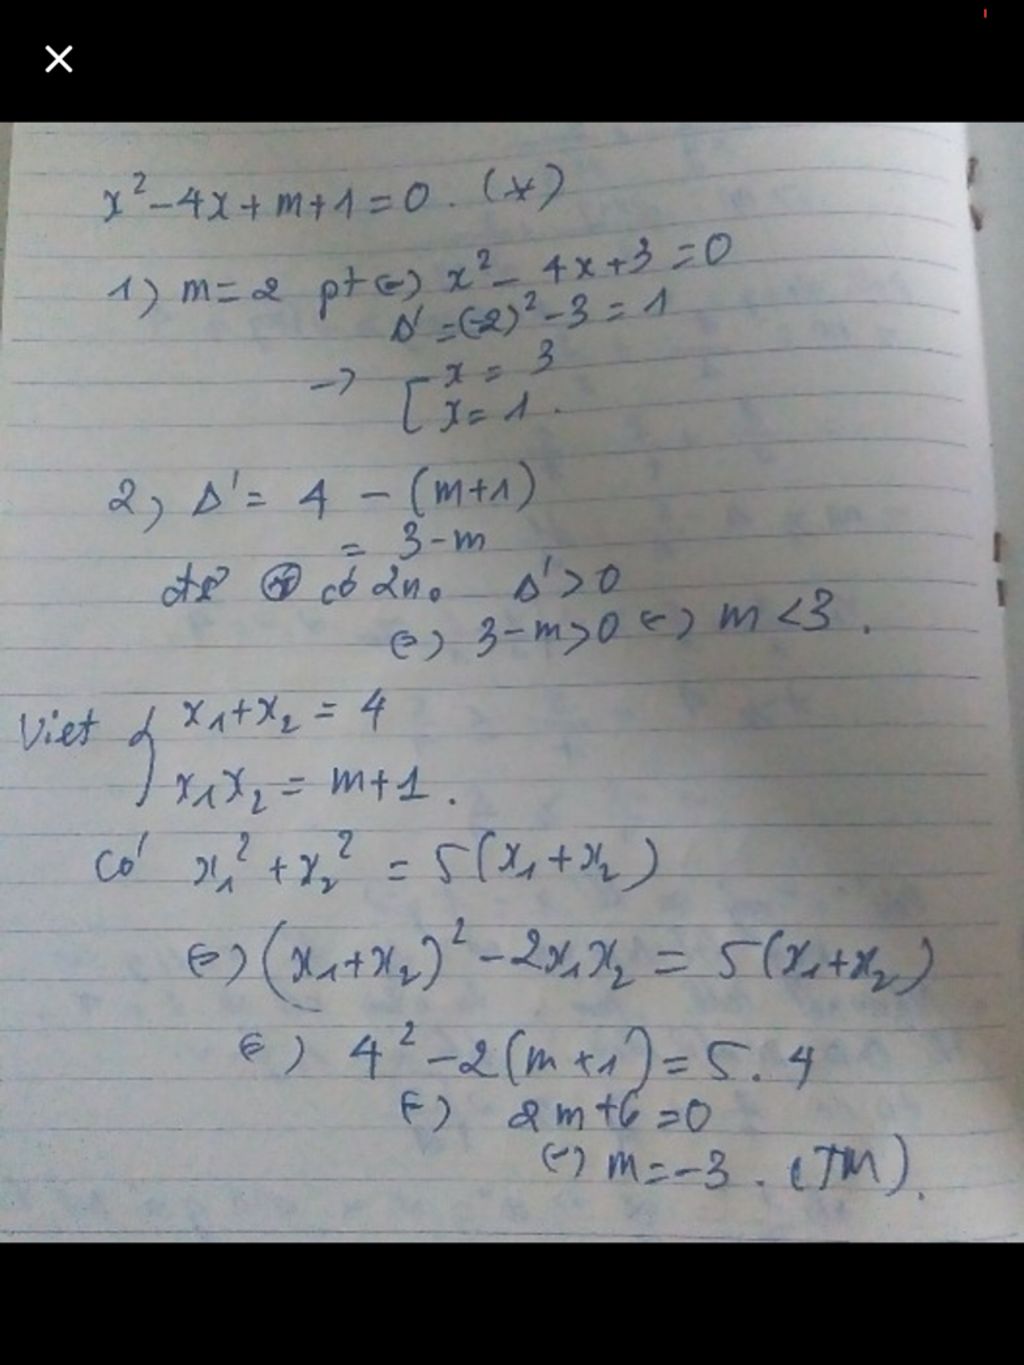 x² - 4x + m + 1 = 0. (*)
1) m = 2 pt (=) x² - 4x + 3 = 0
Δ' = (-2)² - 3 = 1
→ [ x = 3
x = 1.
2) Δ' = 4 - (m+1)
= 3 - m
để có 2n₀ Δ' > 0
(=) 3 - m > 0 (=) m < 3.
Viet { x₁ + x₂ = 4
x₁x₂ = m + 1.
Có x₁² + x₂² = 5(x₁ + x₂)
(=) (x₁ + x₂)² - 2x₁x₂ = 5(x₁ + x₂)
(=) 4² - 2(m + 1) = 5.4
(=) 2m + 6 = 0
(=) m = -3. (TM).